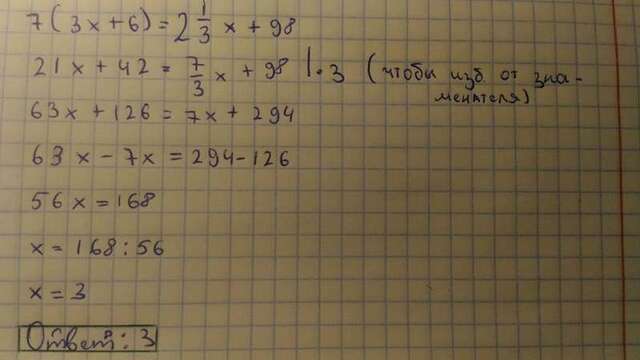 7(3x+6)=2 1/3 x+98
21x+42=7/3 x+98 |·3 (чтобы изб от зна-
менателя)
63x+126=7x+294
63x-7x=294-126
56x=168
x=168:56
x=3
Ответ: 3